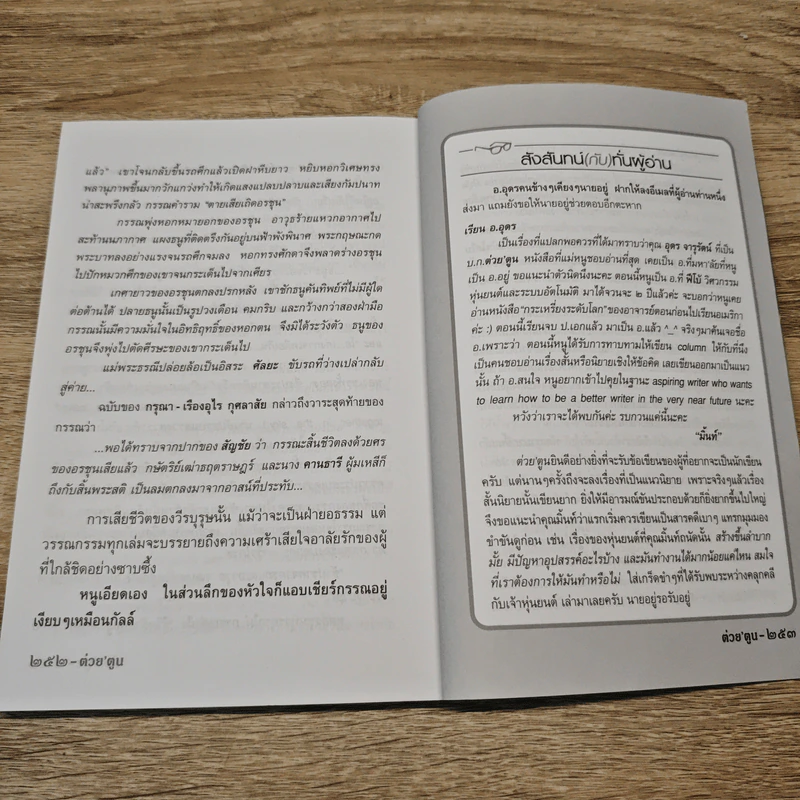 แล้ว" เขาโจนกลับขึ้นรถศึกแล้วเปิดฝาหีบยาว หยิบหอกวิเศษทรง
พลานุภาพขึ้นมากวัดแกว่งทำให้เกิดแสงแปลบปลาบและเสียงกัมปนาท
น่าสะพรึงกลัว กรรณคำราม "ตายเสียเถิดอรชุน"
กรรณพุ่งหอกหมายอกของอรชุน อาวุธร้ายแหวกอากาศไป
สะท้านนภากาศ แผงธนูที่ติดตรึงกันอยู่บนฟ้าพังพินาศ พระกฤษณะกด
พระบาทลงอย่างแรงจนรถศึกจมลง หอกทรงศักดาจึงพลาดร่างอรชุน
ไปปักหมวกศึกของเขาจนกระเด็นไปจากเศียร
เกศายาวของอรชุนตกลงปรกหลัง เขาชักธนูคันทิพย์ที่ไม่มีผู้ใด
ต่อต้านได้ ปลายธนูนั้นเป็นรูปวงเดือน คมกริบ และกว้างกว่าสองฝ่ามือ
กรรณนั้นมีความมั่นใจในอิทธิฤทธิ์ของหอกตน จึงมิได้ระวังตัว ธนูของ
อรชุนจึงพุ่งไปตัดศีรษะของเขากระเด็นไป
แม่พระธรณีปล่อยล้อเป็นอิสระ ศัลยะ ขับรถที่ว่างเปล่ากลับ
สู่ค่าย...
ฉบับของ กรุณา - เรืองอุไร กุศลาสัย กล่าวถึงวาระสุดท้ายของ
กรรณว่า
...พอได้ทราบจากปากของ สัญชัย ว่า กรรณะสิ้นชีวิตลงด้วยศร
ของอรชุนเสียแล้ว กษัตริย์เฒ่าธฤตราษฎร์ และนาง คานธารี ผู้มเหสีก็
ถึงกับสิ้นพระสติ เป็นลมตกลงมาจากอาสน์ที่ประทับ...
การเสียชีวิตของวีรบุรุษนั้น แม้ว่าจะเป็นฝ่ายอธรรม แต่
วรรณกรรมทุกเล่มจะบรรยายถึงความเศร้าเสียใจอาลัยรักของผู้
ที่ใกล้ชิดอย่างซาบซึ้ง
หนูเอียดเอง ในส่วนลึกของหัวใจก็แอบเชียร์กรรณอยู่
เงียบๆเหมือนกัลล์
๒๕๒ – ต่วย'ตูน
สังสันทน์(กับ)ท่านผู้อ่าน
อ.อุดรคนข้างๆเคียงๆนายอยู่ ฝากให้ลงอีเมลที่ผู้อ่านท่านหนึ่ง
ส่งมา แถมยังขอให้นายอยู่ช่วยตอบอีกตะหาก
เรียน อ.อุดร
เป็นเรื่องที่แปลกพอควรที่ได้มาทราบว่าคุณ อุดร จารุรัตน์ ที่เป็น
บ.ก.ต่วย'ตูน หนังสือที่แม่หนูชอบอ่านที่สุด เคยเป็น อ.ที่มหา'ลัยที่หนู
เป็น อ.อยู่ ขอแนะนำตัวนิดนึงนะคะ ตอนนี้หนูเป็น อ.ที่ ฟีโบ้ วิศวกรรม
หุ่นยนต์และระบบอัตโนมัติ มาได้จวนจะ ๒ ปีแล้วค่ะ จะบอกว่าหนูเคย
อ่านหนังสือ"กระเหรี่ยงระดับโลก"ของอาจารย์ตอนก่อนไปเรียนอเมริกา
ค่ะ :) ตอนนี้เรียนจบ ป.เอกแล้ว มาเป็น อ.แล้ว ^_^ จริงๆมาค้นเจอชื่อ
อ.เพราะว่า ตอนนี้หนูได้รับการทาบทามให้เขียน column ให้กับที่นึง
เป็นคนชอบอ่านเรื่องสั้นหรือนิยายเชิงให้ข้อคิด เลยเขียนออกมาเป็นแนว
นั้น ถ้า อ.สนใจ หนูอยากเข้าไปคุยในฐานะ aspiring writer who wants
to learn how to be a better writer in the very near future นะคะ
หวังว่าเราจะได้พบกันค่ะ รบกวนแค่นี้นะคะ
"มิ้นท์"
ต่วย'ตูนยินดีอย่างยิ่งที่จะรับข้อเขียนของผู้ที่อยากจะเป็นนักเขียน
ครับ แต่นานๆครั้งถึงจะลงเรื่องที่เป็นแนวนิยาย เพราะจริงๆแล้วเรื่อง
สั้นนิยายนั้นเขียนยาก ยิ่งให้มีอารมณ์ขันประกอบด้วยก็ยิ่งยากขึ้นไปใหญ่
จึงขอแนะนำคุณมิ้นท์ว่าแรกเริ่มควรเขียนเป็นสารคดีเบาๆ แทรกมุมมอง
ขำขันดูก่อน เช่น เรื่องของหุ่นยนต์ที่คุณมิ้นท์ถนัดนั้น สร้างขึ้นลำบาก
มั้ย มีปัญหาอุปสรรคอะไรบ้าง และมันทำงานได้มากน้อยแค่ไหน สมใจ
ที่เราต้องการให้มันทำหรือไม่ ใส่เกร็ดขำๆที่ได้พบระหว่างคลุกคลี
กับเจ้าหุ่นยนต์ เล่ามาเลยครับ นายอยู่รอรับอยู่
ต่วย'ตูน – ๒๕๓